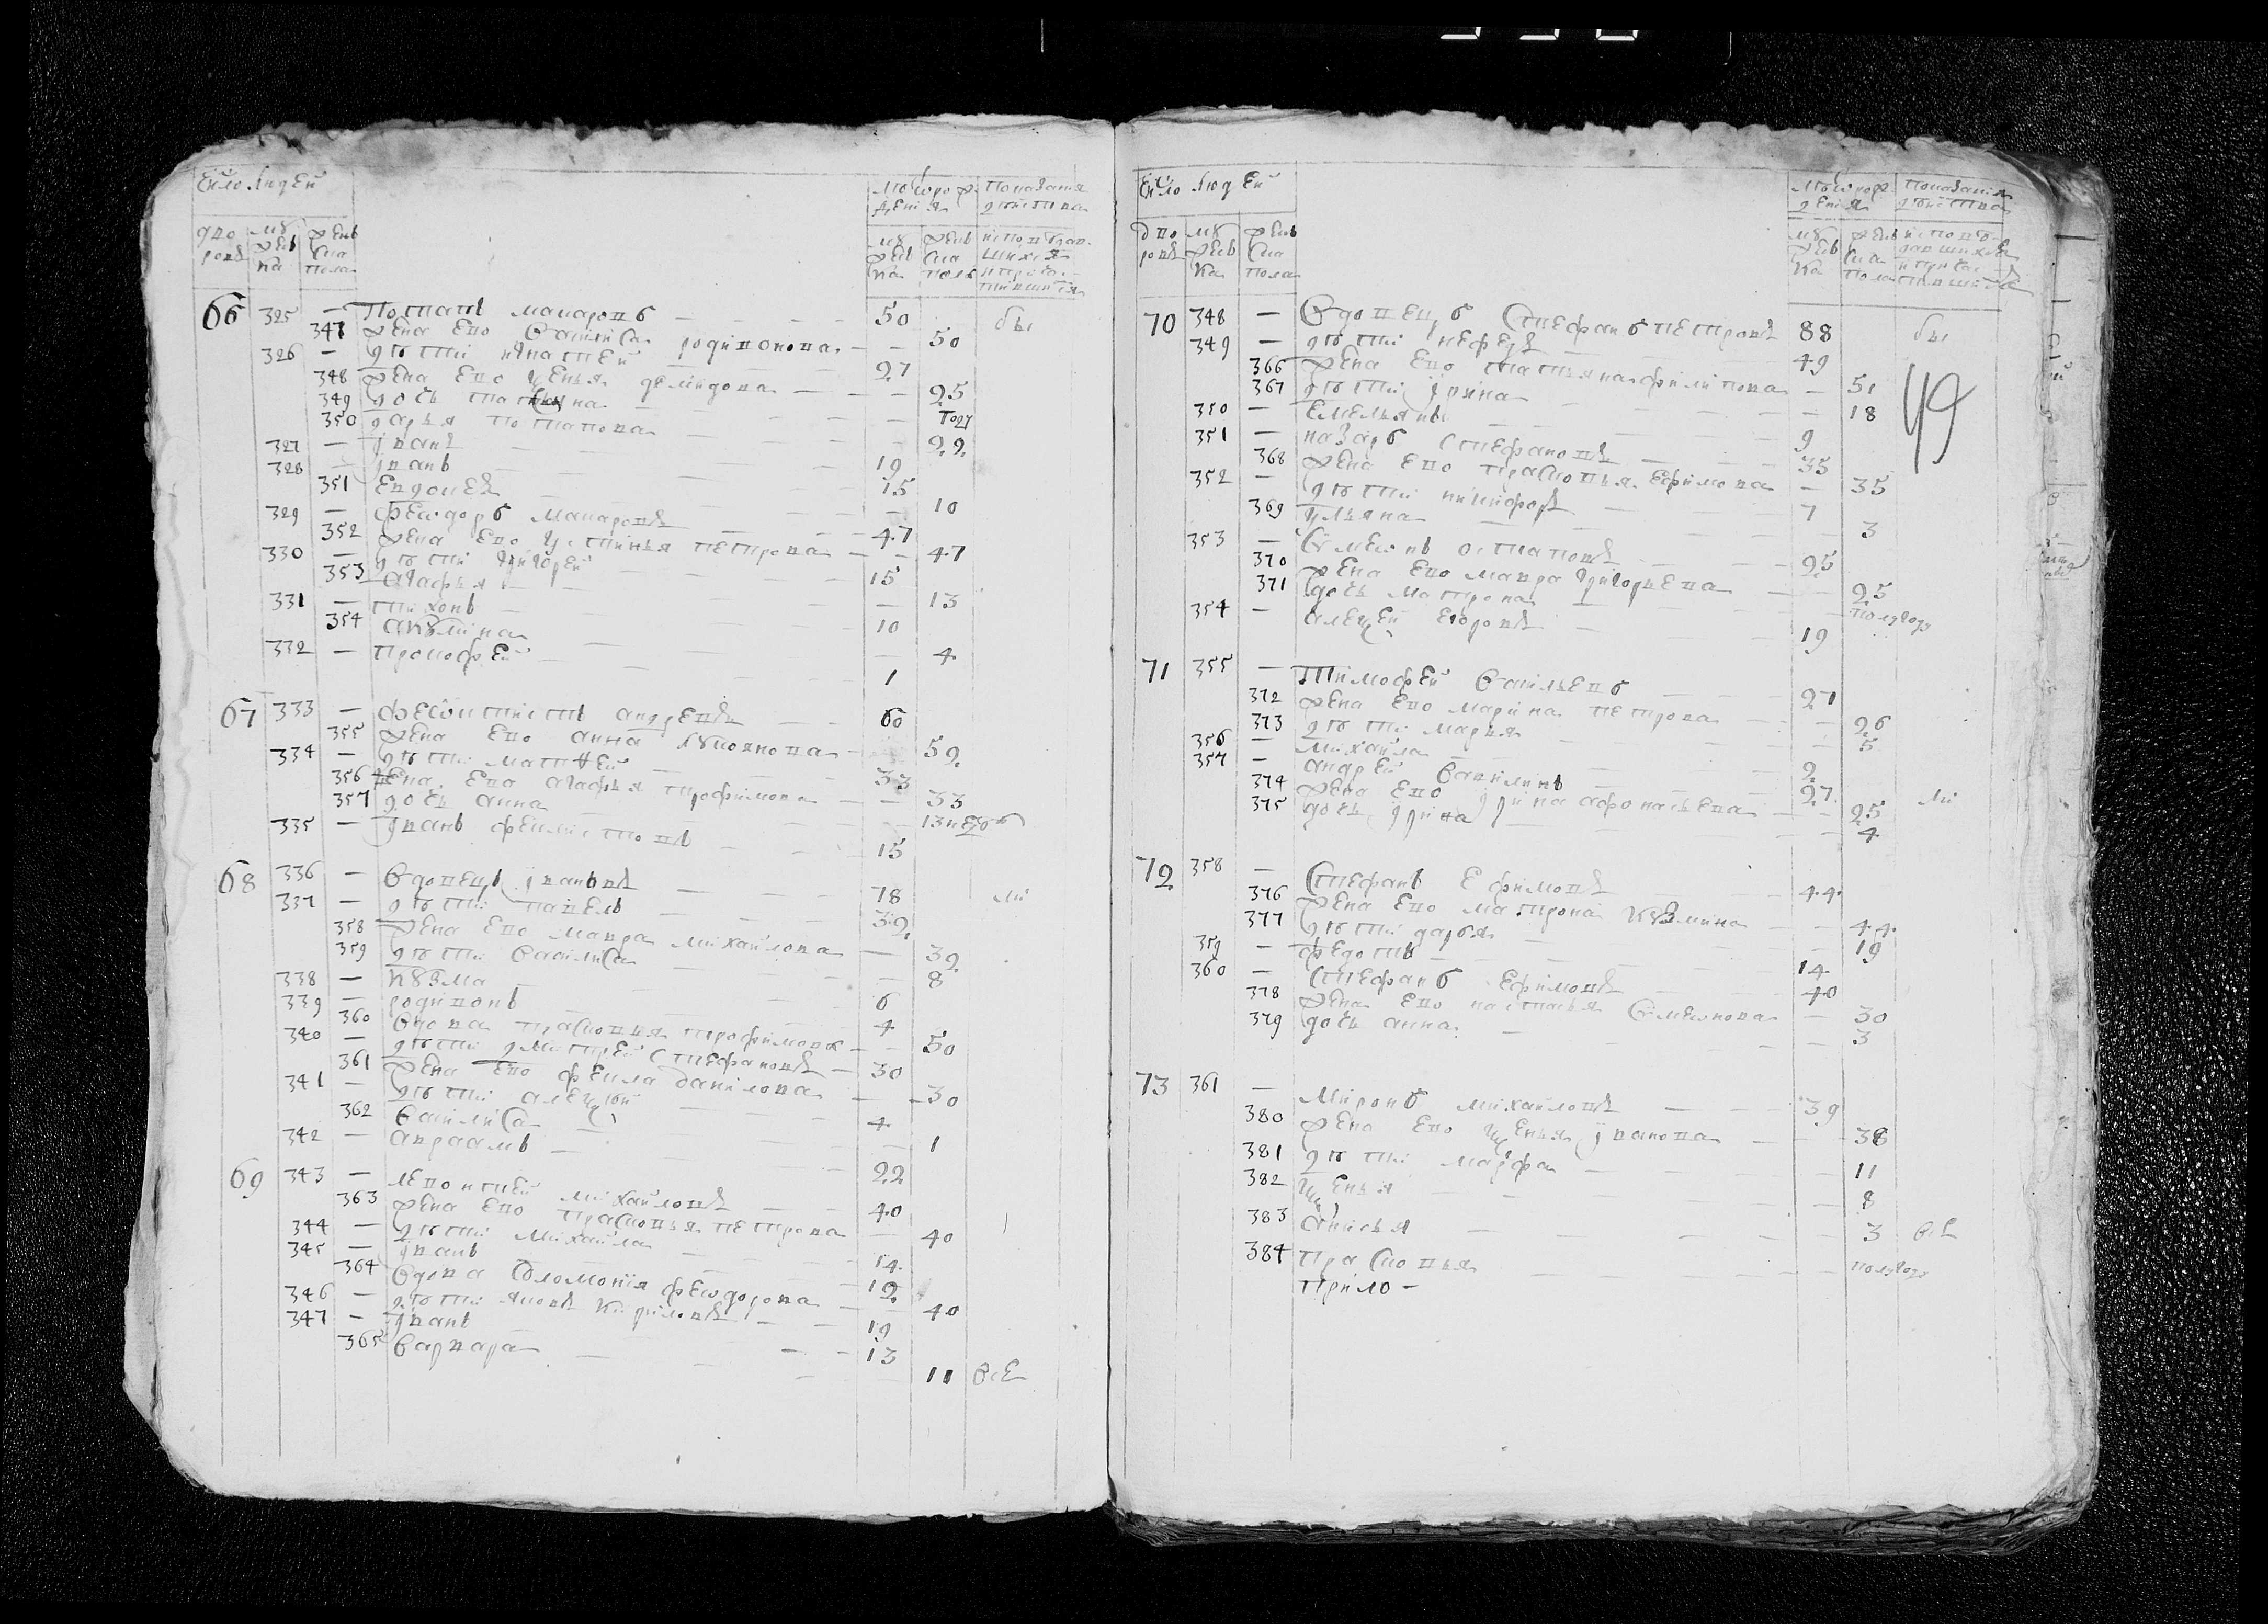 Число людей
дворовъ
муженска
женска пола
Мѣ от рождения
муженска
женска полу
Показания действа исповѣдавшихся и причастившихся
66 325 — Потапъ макаровъ — 50 бы
347 жена ево василиса родионова — 50
326 — дѣти игнатей — 27
348 жена ево демидова — 25
349 дочь татьяна — году
350 дарья потапова — 22
327 — іванъ — 19
328 — іванъ — 15
351 Евдокея — 10
329 — Феѡдоръ макаровъ — 47
352 жена ево устинья петрова — 47
330 — дѣти григорей — 15
353 агафья — 13
331 — тихонъ — 10
354 акулина — 4
332 — прокофей — 1
67 333 — андреевъ — 60
355 жена ево анна лукоянова — 59
334 — дѣти матѳей — 33
356 жена ево агафья трофимова — 33
357 дочь анна — 13 не
335 — іванъ — 15
68 336 — вдовецъ івановъ — 78 ли
337 — дѣти павелъ — 32
358 жена ево мавра михайлова — 32
359 дѣти василиса — 8
338 — кузма — 6
339 — родионъ — 4
360 вдова прасковья трофимова — 50
340 — дѣти дмитрей стефановъ — 30
361 жена ево фекла данилова — 30
341 — дѣти алеѯѣй — 4
362 василиса — 1
342 — авраамъ — 22
69 343 — леонтей михайловъ — 40
363 жена ево прасковья петрова — 40
344 — дѣти михайла — 14
345 — іванъ — 12
364 вдова соломонія феѡдорова — 40
346 — дѣти яковъ кириловъ — 19
347 — іванъ — 13
365 варвара — 11 всѣ
Число людей
дворовъ
муженска
женска пола
Мѣ от рождения
муженска
женска пола
Показания действа исповѣдавшихся и причастившихся
70 348 — вдовецъ стефанъ петровъ 88 бы
349 — дѣти нефедъ — 49
49
366 жена ево татьяна филипова — 51
367 дѣти ірина — 18
350 — Емельянъ — 9
351 — назаръ стефановъ — 35
368 жена ево прасковья Ефимова — 35
352 — дѣти никифоръ — 7
369 ульяна — 3
353 — семенъ остаповъ — 25
370 жена ево мавра григорьева — 25
371 дочь матрона — полугоду
354 — алеѯей егоровъ — 19
71 355 — Тимофей васильевъ — 27
372 жена ево марина петрова — 26
373 дѣти марья — 5
356 — михайла — 2
357 — андрей — 27 ли
374 жена ево ірина афонасьева — 25
375 дочь ірина — 4
72 358 — стефанъ Ефимовъ — 44
376 жена ево матрона кузмина — 44
377 дѣти дарья — 19
359 — федотъ — 14
360 — стефанъ ефимовъ — 40
378 жена ево настасья семенова — 30
379 дочь анна — 3
73 361 — миронъ михайловъ — 39
380 жена ево ѯенья іванова — 38
381 дѣти марфа — 11
382 ѯенья — 8
383 анисья — 3 всѣ
384 прасковья — полугоду